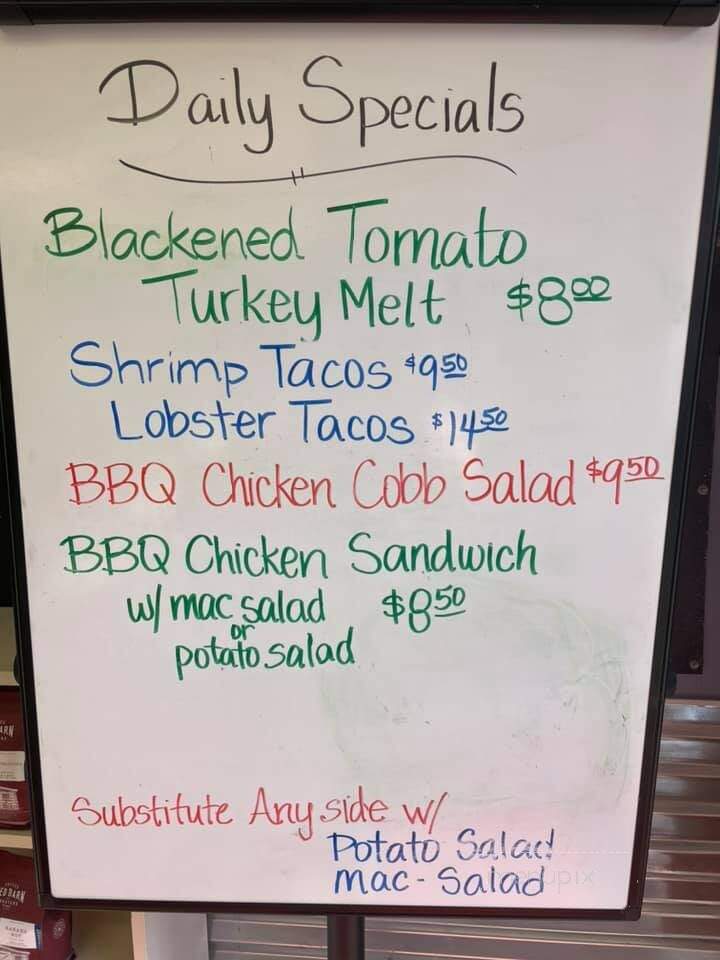 Daily Specials
Blackened Tomato
Turkey Melt $8.00
Shrimp Tacos $9.50
Lobster Tacos $14.50
BBQ Chicken Cobb Salad $9.50
BBQ Chicken Sandwich
w/ mac salad $8.50
or
potato salad
Substitute Any side w/
Potato Salad
Mac - Salad